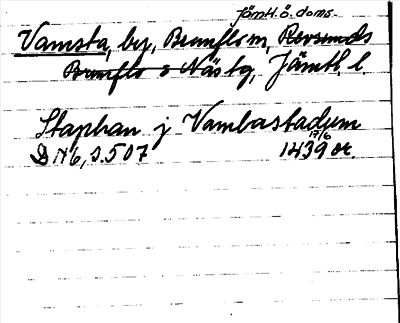 Jämtl. ö. doms.
Vamsta, by, Brunflo sn, Revsunds
Brunflo o Näs tg, Jämtl. l.
Staphan j Vambastadum
DN 6, s. 507 1439 17/6 or.